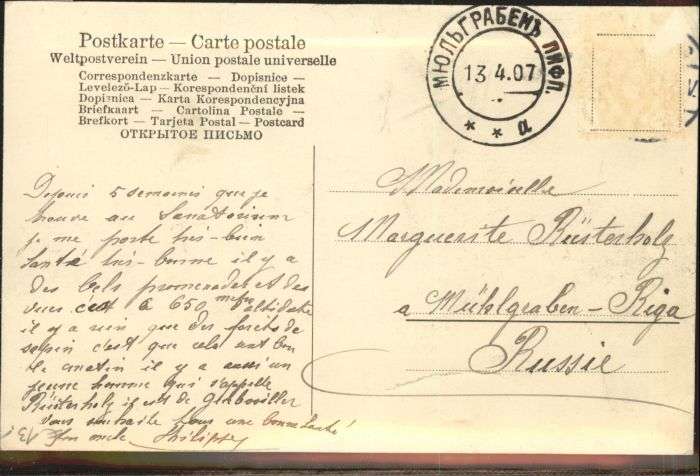 Postkarte — Carte postale
Weltpostverein — Union postale universelle
Correspondenzkarte — Dopisnice —
Levelező-Lap — Korespondenční listek
Dopisnica — Karta Korespondencyjna
Briefkaart — Cartolina Postale —
Brefkort — Tarjeta Postal — Postcard
ОТКРЫТОЕ ПИСЬМО
МЮЛЬГРАБЕНЪ ЛИФЛ.
13 4.07
* * а
Mademoiselle
Marguerite Rüsterholz
a Mühlgraben – Riga
Russie
Depuis 5 semaines que je
trouve au Sanatorium
je me porte très-bien
Santé très-bonne il y a
des bels promenades et des
vues c'est à 650 metres d'altidute
il y a rien que des forêts de
sapin c'est que cela sent bon
le matin il y a aussi un
jeune homme qui s'appelle
Rüsterholz il est de
vous souhaite tous une bonne Santé!
oncle Philippe